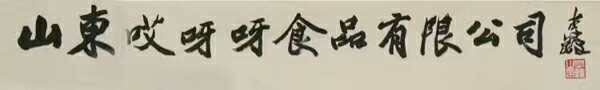 山東哎呀呀食品有限公司